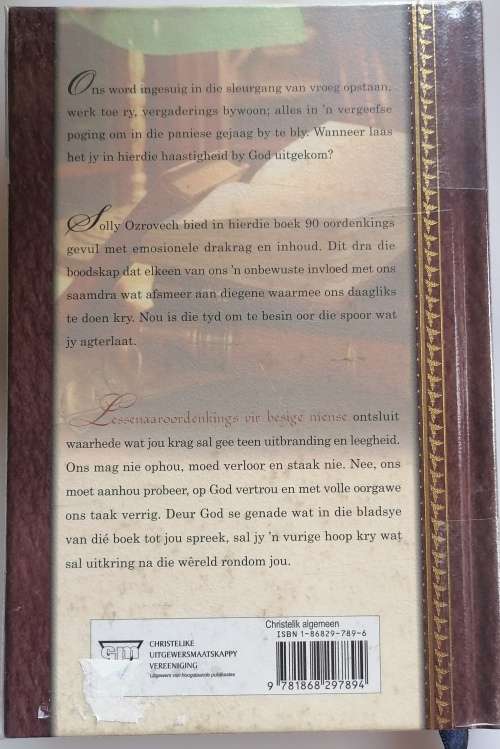 Ons word ingesuig in die sleurgang van vroeg opstaan,
werk toe ry, vergaderings bywoon; alles in 'n vergeefse
poging om in die paniese gejaag by te bly. Wanneer laas
het jy in hierdie haastigheid by God uitgekom?
Solly Ozrovech bied in hierdie boek 90 oordenkings
gevul met emosionele drakrag en inhoud. Dit dra die
boodskap dat elkeen van ons 'n onbewuste invloed met ons
saamdra wat afsmeer aan diegene waarmee ons daagliks
te doen kry. Nou is die tyd om te besin oor die spoor wat
jy agterlaat.
Lessenaaroordenkings vir besige mense ontsluit
waarhede wat jou krag sal gee teen uitbranding en leegheid.
Ons mag nie ophou, moed verloor en staak nie. Nee, ons
moet aanhou probeer, op God vertrou en met volle oorgawe
ons taak verrig. Deur God se genade wat in die bladsye
van dié boek tot jou spreek, sal jy 'n vurige hoop kry wat
sal uitkring na die wêreld rondom jou.
CHRISTELIKE
UITGEWERSMAATSKAPPY
VERENIGING
Uitgewers van hoogstaande publikasies
Christelik algemeen
ISBN 1-86829-789-6
9 781868 297894